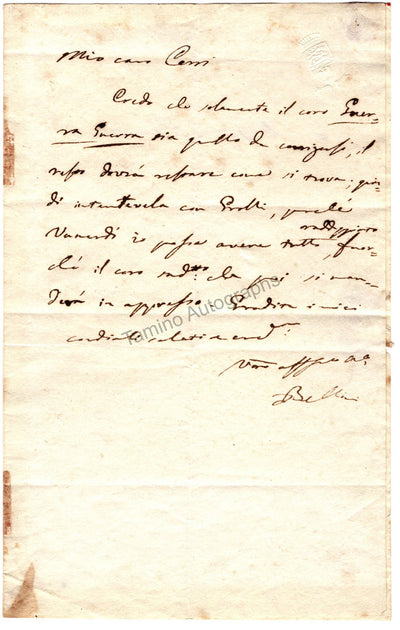 Mio caro Cerri
Credo che solamente il coro Guer-
ra Guerra sia quello da corriggersi, il
resto dovrà restare come si trova; quin-
di intendetevela con Grolli, perché
raddoppiato
Vennerdì io possa avere tutto, fuor-
ché il coro sud:tto che poi si man-
derà in appresso. Gradite i miei
cordiali saluti a
Vro aff
Bellini
Tamino Autographs